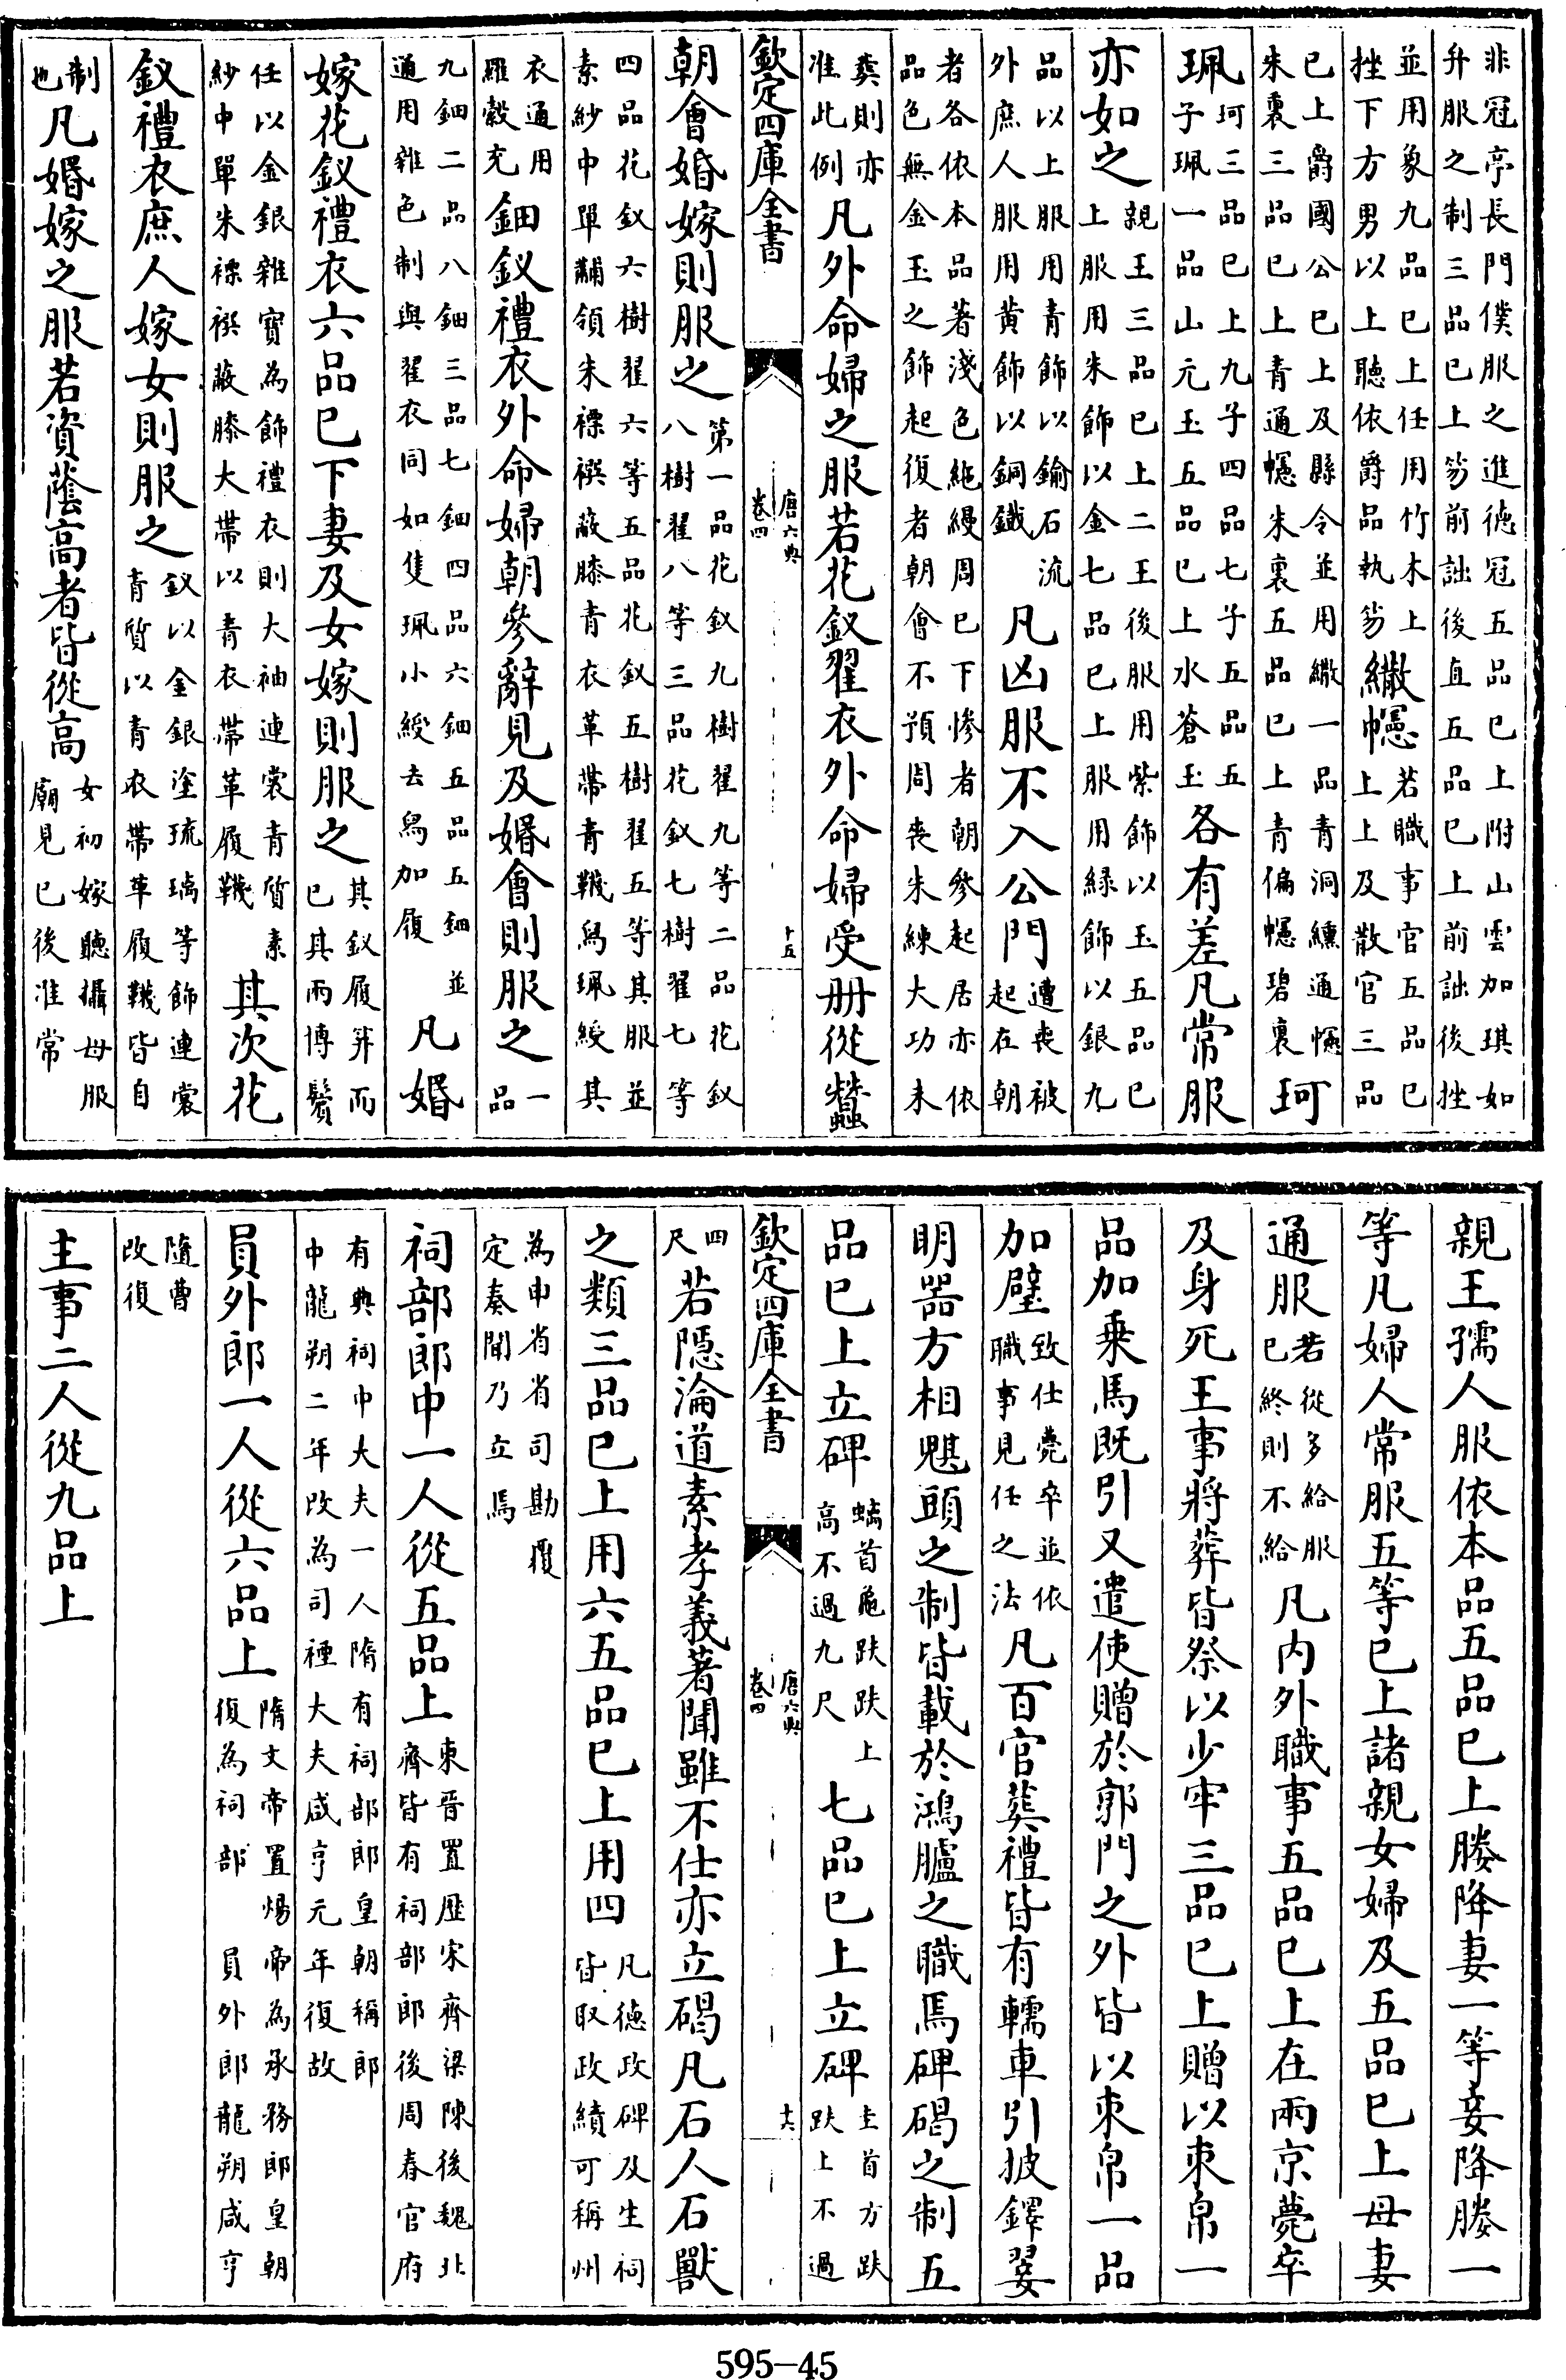 非冠亭長門僕服之進德冠五品已上附山雲加琪如
弁服之制三品已上笏前詘後直五品已上前詘後挫
並用象九品已上任用竹木上
挫下方男以上聽依爵品執笏
繖幰
若職事官五品已
上上及散官三品
已上爵國公已上及縣令並用繖一品青洞纁通幰
朱裏三品已上青通幰朱裏五品已上青偏幰碧裏
珂
珮
珂三品已上九子四品七子五品五
子珮一品山元玉五品已上水蒼玉
各有差凡常服
亦如之
親王三品已上二王後服用紫飾以玉五品已
上服用朱飾以金七品已上服用緑飾以銀九
品以上服用青飾以鍮石流
外庶人服用黄飾以銅鐵
凡凶服不入公門
遭喪被
起在朝
者各依本品著淺色絁縵周已下慘者朝參起居亦依
品色無金玉之飾起復者朝會不預周喪朱練大功未
葬則亦
准此例
凡外命婦之服若花釵翟衣外命婦受冊從蠶
欽定四庫全書
唐六典
卷四
十五
朝會婚嫁則服之
第一品花釵九樹翟九等二品花釵
八樹翟八等三品花釵七樹翟七等
四品花釵六樹翟六等五品花釵五樹翟五等其服並
素紗中單黼領朱褾襈蔽膝青衣革帶青韈舄珮綬其
衣通用
羅縠充
鈿釵禮衣外命婦朝參辭見及婚會則服之
一
品
九鈿二品八鈿三品七鈿四品六鈿五品五鈿並
通用雜色制與翟衣同如隻珮小綬去舄加履
凡婚
嫁花釵禮衣六品已下妻及女嫁則服之
其釵履笄而
已其兩博鬢
任以金銀雜寶為飾禮衣則大袖連裳青質素
紗中單朱褾襈蔽膝大帶以青衣帶革履韈
其次花
釵禮衣庶人嫁女則服之
釵以金銀塗琉璃等飾連裳
青質以青衣帶革履韈皆自
制
也
凡婚嫁之服若資蔭高者皆從高
女初嫁聽攝母服
廟見已後准常
親王孺人服依本品五品已上媵降妻一等妾降媵一
等凡婦人常服五等已上諸親女婦及五品已上母妻
通服
若從多給服
已終則不給
凡内外職事五品已上在兩京薨卒
及身死王事將葬皆祭以少牢三品已上贈以束帛一
品加乗馬既引又遣使贈於郭門之外皆以束帛一品
加璧
致仕薨卒並依
職事見任之法
凡百官葬禮皆有轜車引披鐸翣
明器方相魌頭之制皆載於鴻臚之職焉碑碣之制五
品已上立碑
螭首龜趺趺上
高不過九尺
七品已上立碑
圭首方趺
趺上不過
欽定四庫全書
唐六典
卷四
十六
四
尺
若隱淪道素孝義著聞雖不仕亦立碣凡石人石獸
之類三品已上用六五品已上用四
凡德政碑及生祠
皆取政績可稱州
為申省省司勘覆
定奏聞乃立焉
祠部郎中一人從五品上
東晉置歴宋齊梁陳後魏北
齊皆有祠部郎後周春官府
有典祠中大夫一人隋有祠部郎皇朝稱郎
中龍朔二年改為司禋大夫咸亨元年復故
員外郎一人從六品上
隋文帝置煬帝為承務郎皇朝
復為祠部員外郎龍朔咸亨
隨曹
改復
主事二人從九品上
595-45